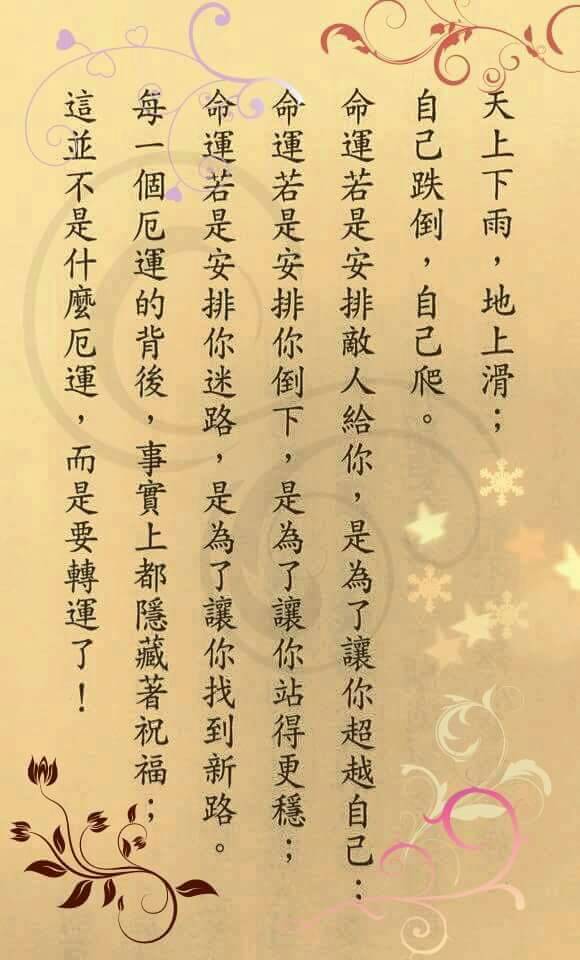 天上下雨，地上滑；
自己跌倒，自己爬。
命運若是安排敵人給你，是為了讓你超越自己；
命運若是安排你倒下，是為了讓你站得更穩；
命運若是安排你迷路，是為了讓你找到新路。
每一個厄運的背後，事實上都隱藏著祝福；
這並不是什麼厄運，而是要轉運了！